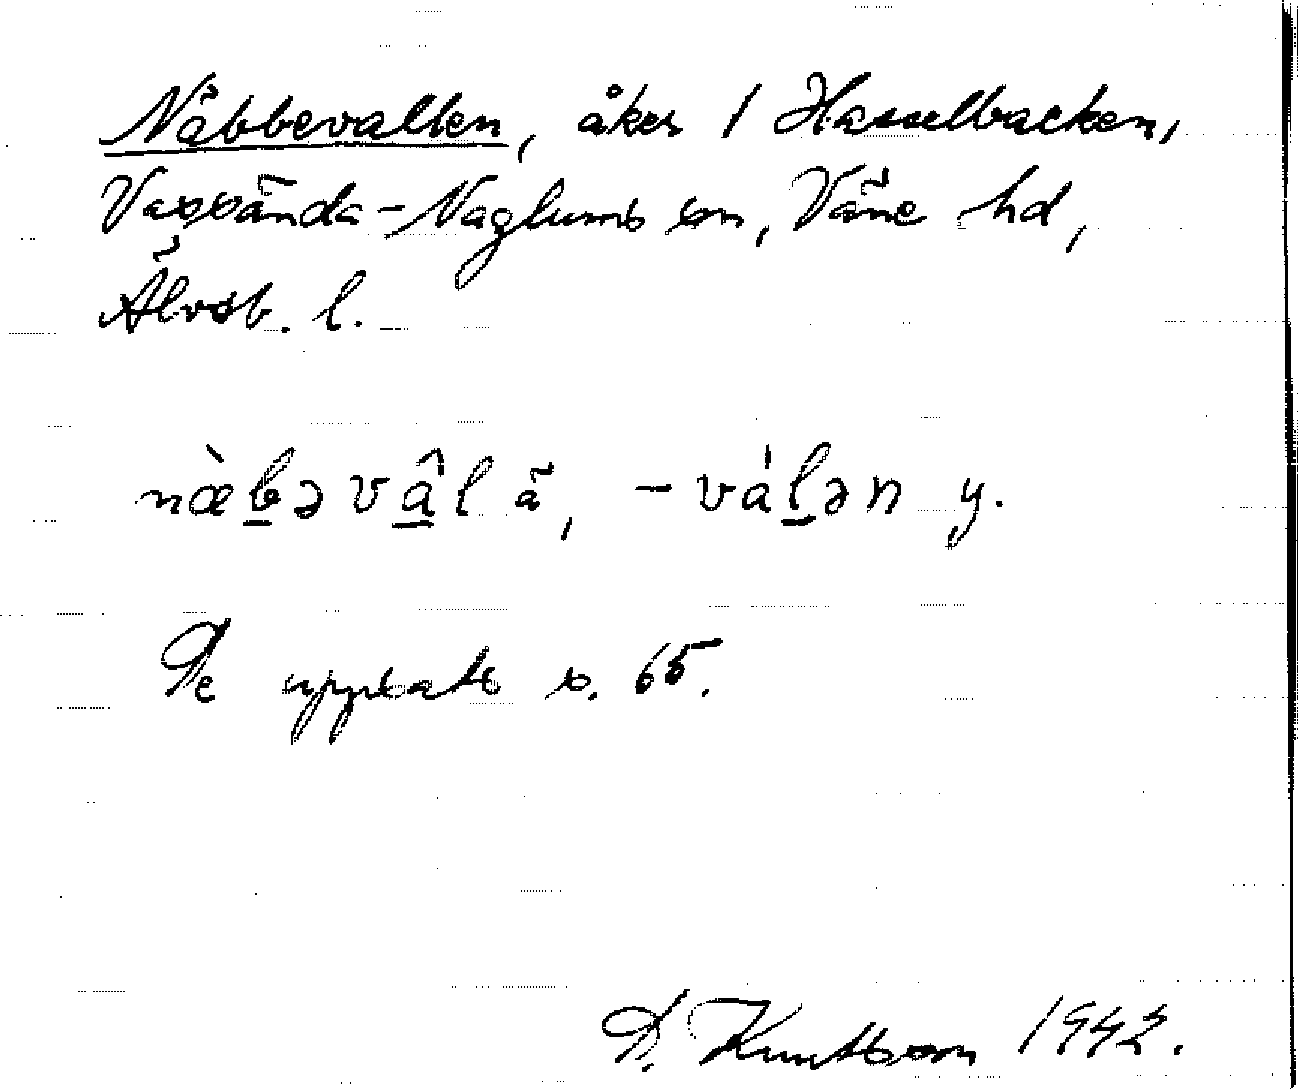 Näbbevallen, åker / Hasselbacken,
Vassända-Naglums sn, Väne hd,
Älvsb. l.
næ̀b̲əvâ̲l ä, -vál̲ən y.
Se uppsats s. 65.
D. Knutsson 1942.